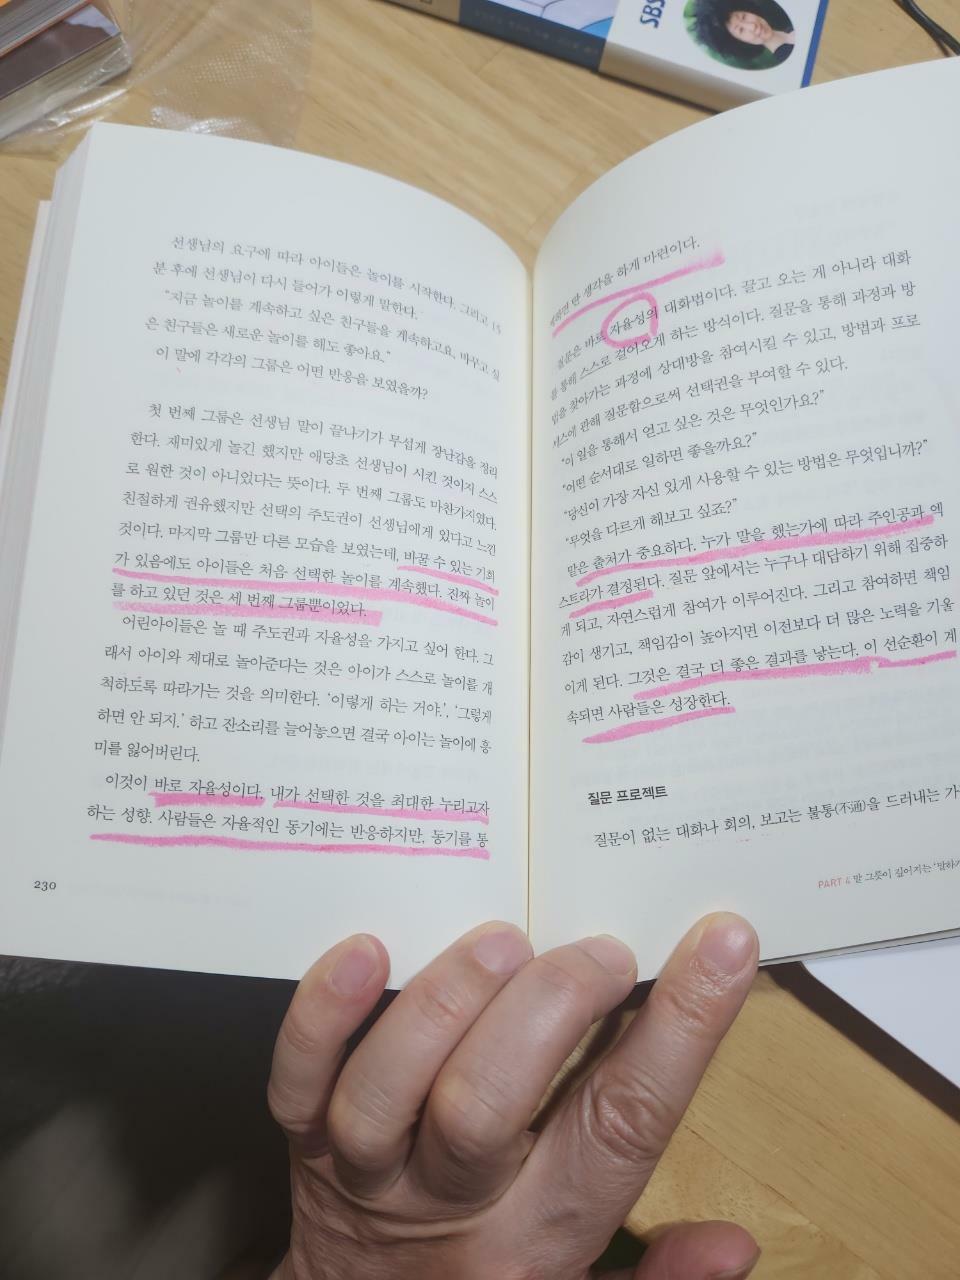 SBS
선생님의 요구에 따라 아이들은 놀이를 시작한다. 그리고 15
분 후에 선생님이 다시 들어가 이렇게 말한다.
“지금 놀이를 계속하고 싶은 친구들을 계속하고요, 바꾸고 싶
은 친구들은 새로운 놀이를 해도 좋아요.”
이 말에 각각의 그룹은 어떤 반응을 보였을까?
첫 번째 그룹은 선생님 말이 끝나기가 무섭게 장난감을 정리
한다. 재미있게 놀긴 했지만 애당초 선생님이 시킨 것이지 스스
로 원한 것이 아니었다는 뜻이다. 두 번째 그룹도 마찬가지였다.
친절하게 권유했지만 선택의 주도권이 선생님에게 있다고 느낀
것이다. 마지막 그룹만 다른 모습을 보였는데, 바꿀 수 있는 기회
가 있음에도 아이들은 처음 선택한 놀이를 계속했다. 진짜 놀이
를 하고 있던 것은 세 번째 그룹뿐이었다.
어린아이들은 놀 때 주도권과 자율성을 가지고 싶어 한다. 그
래서 아이와 제대로 놀아준다는 것은 아이가 스스로 놀이를 개
척하도록 따라가는 것을 의미한다. ‘이렇게 하는 거야.’, ‘그렇게
하면 안 되지.’ 하고 잔소리를 늘어놓으면 결국 아이는 놀이에 흥
미를 잃어버린다.
이것이 바로 자율성이다. 내가 선택한 것을 최대한 누리고자
하는 성향. 사람들은 자율적인 동기에는 반응하지만, 동기를 통
230
딴 생각을 하게 마련이다.
질문은 바로 자율성의 대화법이다. 끌고 오는 게 아니라 대화
를 통해 스스로 걸어오게 하는 방식이다. 질문을 통해 과정과 방
법을 찾아가는 과정에 상대방을 참여시킬 수 있고, 방법과 프로
세스에 관해 질문함으로써 선택권을 부여할 수 있다.
“이 일을 통해서 얻고 싶은 것은 무엇인가요?”
“어떤 순서대로 일하면 좋을까요?”
“당신이 가장 자신 있게 사용할 수 있는 방법은 무엇입니까?”
“무엇을 다르게 해보고 싶죠?”
말은 출처가 중요하다. 누가 말을 했는가에 따라 주인공과 엑
스트라가 결정된다. 질문 앞에서는 누구나 대답하기 위해 집중하
게 되고, 자연스럽게 참여가 이루어진다. 그리고 참여하면 책임
감이 생기고, 책임감이 높아지면 이전보다 더 많은 노력을 기울
이게 된다. 그것은 결국 더 좋은 결과를 낳는다. 이 선순환이 계
속되면 사람들은 성장한다.
질문 프로젝트
질문이 없는 대화나 회의, 보고는 불통(不通)을 드러내는 가
PART 4 말 그릇이 깊어지는 ‘말하기